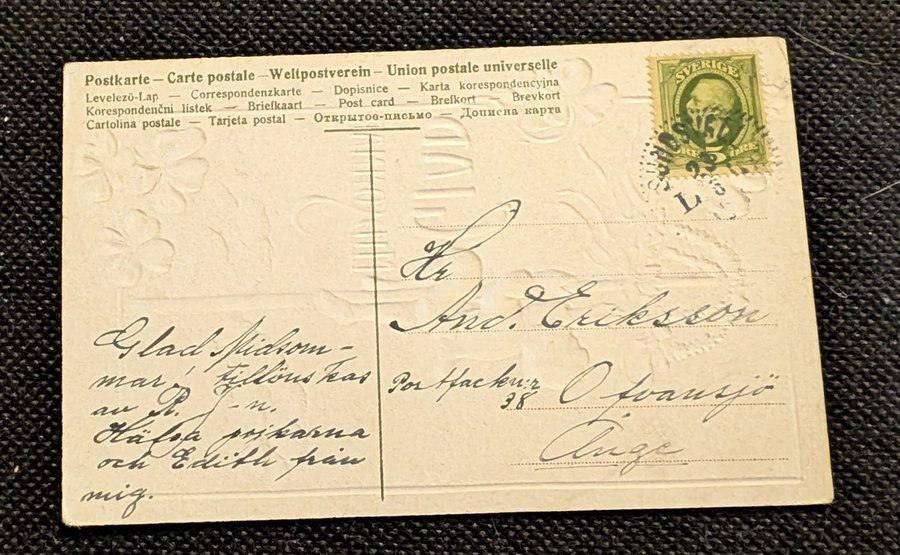 Postkarte – Carte postale – Weltpostverein – Union postale universelle
Levelezö-Lap — Correspondenzkarte — Dopisnice — Karta korespondencyjna
Korespondenční listek — Briefkaart — Post card — Brefkort — Brevkort
Cartolina postale — Tarjeta postal — Открытое-письмо — Дописна карта
SVERIGE
5
Hr
And. Eriksson
Postfack n:r
38
Ofvansjö
Ånge
Glad Midsom-
mar! Tillönskas
av R. J-n.
Hälsa pojkarna
och Edith från
mig.